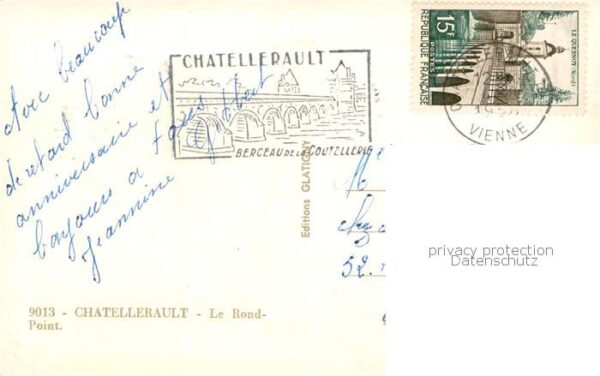 Avec beaucoup
de retard bonne
anniversaire et
bonjour a tous
Jeannine
CHATELLERAULT
BERCEAU DE LA COUTELLERIE
15F
REPUBLIQUE FRANÇAISE
POSTES
LE QUESNOY (NORD)
VIENNE
Editions GLATIGNY
52.
privacy protection
Datenschutz
9013 - CHATELLERAULT - Le Rond-
Point.